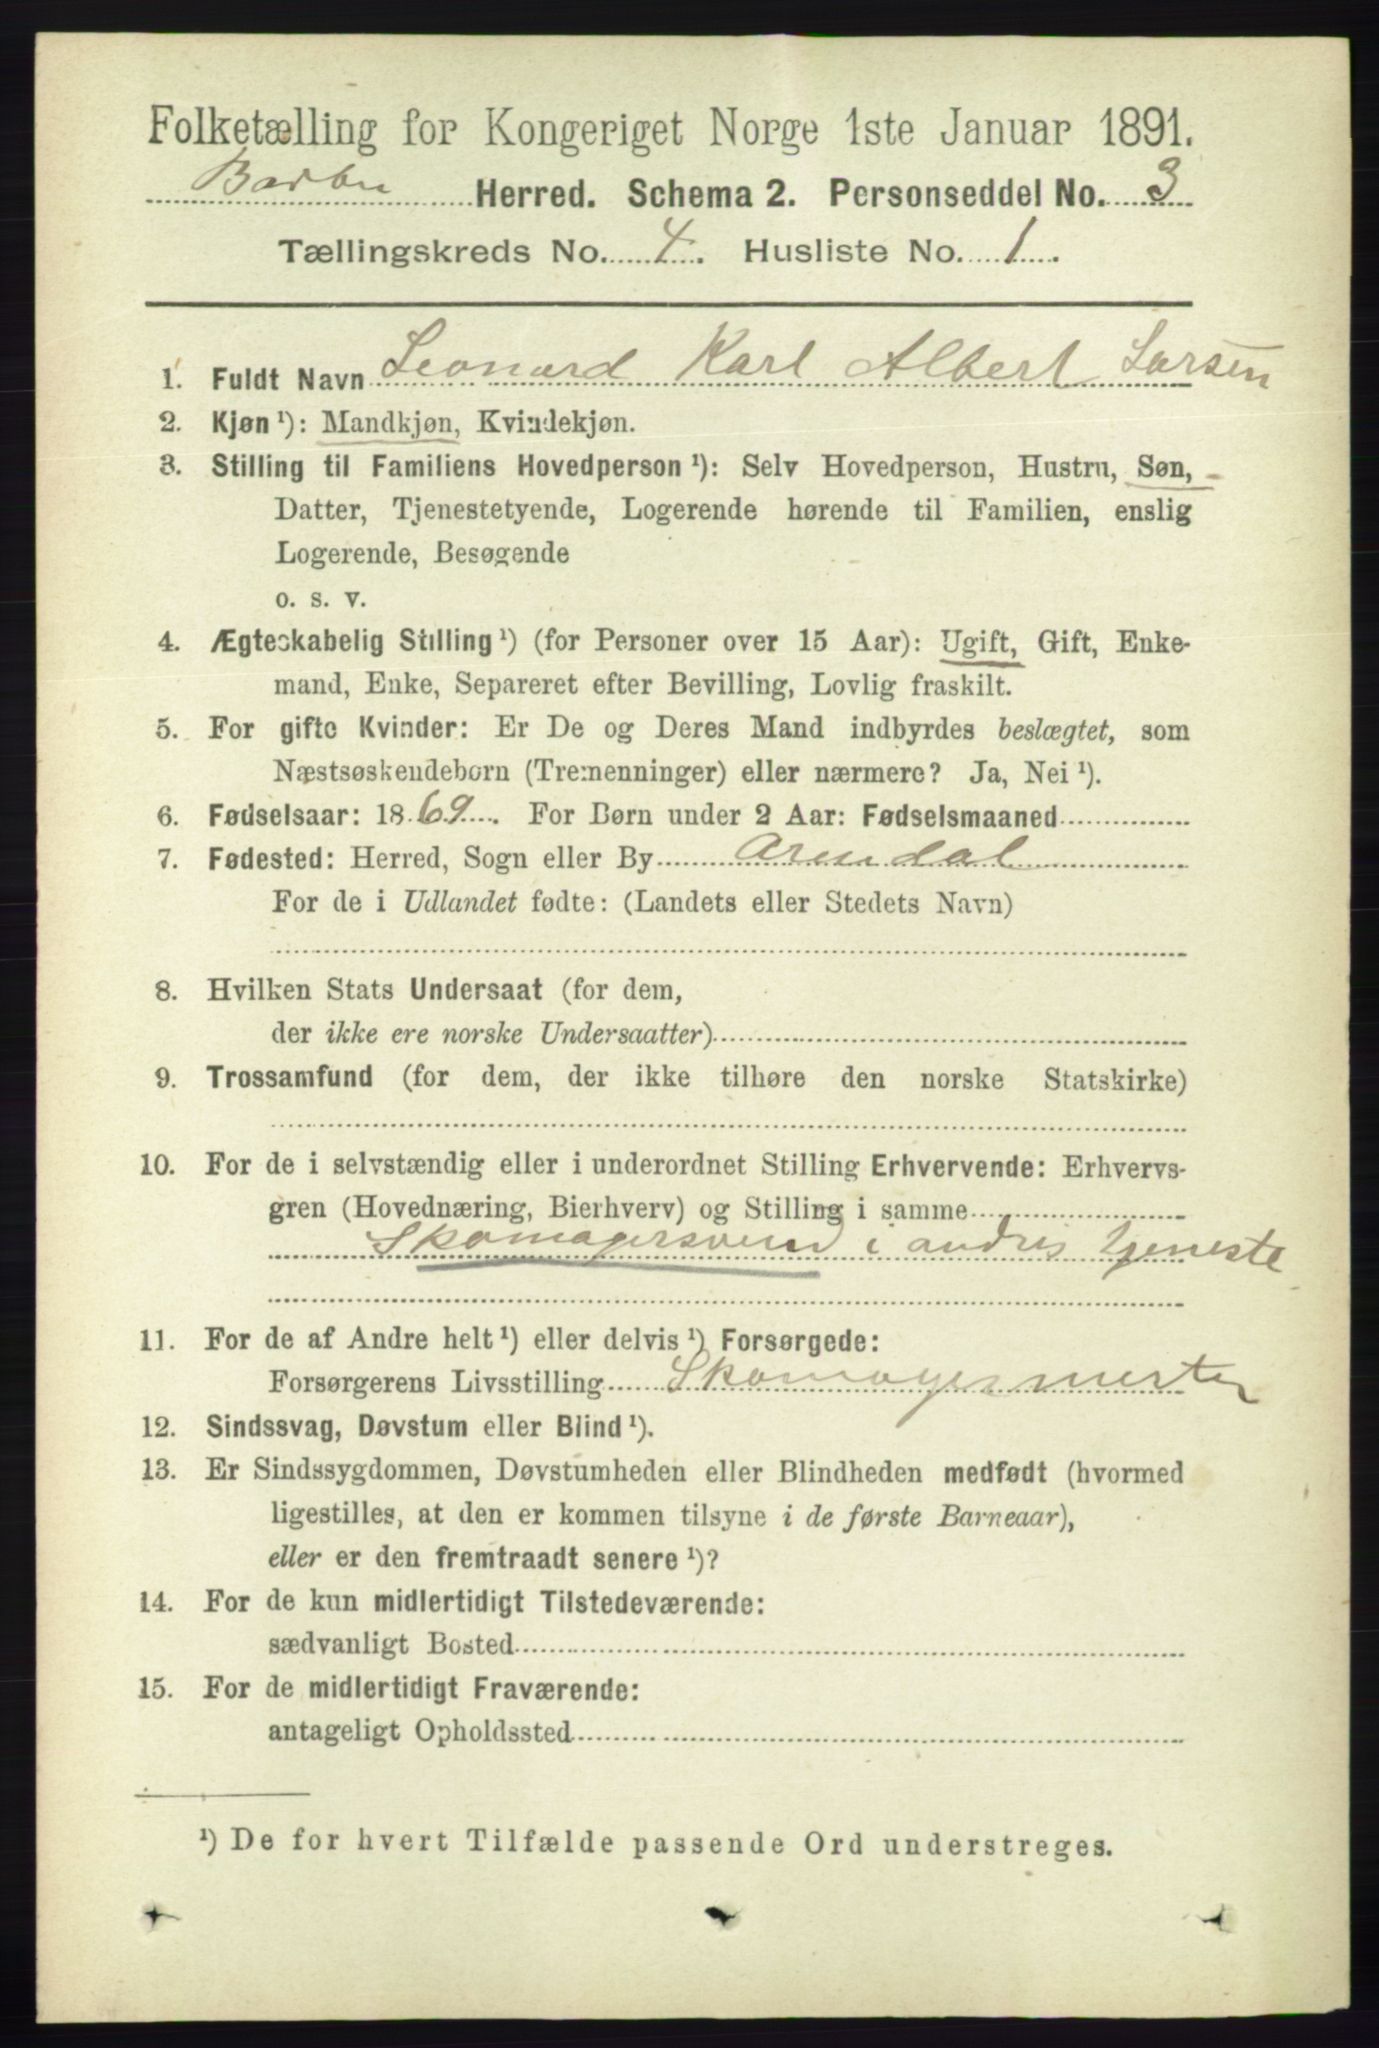 Folketælling for Kongeriget Norge 1ste Januar 1891.
Barbu Herred. Schema 2. Personseddel No. 3
Tællingskreds No. 4. Husliste No. 1.
1. Fuldt Navn Leonard Karl Albert Larsen
2. Kjøn ¹): Mandkjøn, Kvindekjøn.
3. Stilling til Familiens Hovedperson ¹): Selv Hovedperson, Hustru, Søn,
Datter, Tjenestetyende, Logerende hørende til Familien, enslig
Logerende, Besøgende
o. s. v.
4. Ægteskabelig Stilling ¹) (for Personer over 15 Aar): Ugift, Gift, Enke-
mand, Enke, Separeret efter Bevilling, Lovlig fraskilt.
5. For gifte Kvinder: Er De og Deres Mand indbyrdes beslægtet, som
Næstsøskendeborn (Tremenninger) eller nærmere? Ja, Nei ¹).
6. Fødselsaar: 1869. For Børn under 2 Aar: Fødselsmaaned
7. Fødested: Herred, Sogn eller By Arendal
For de i Udlandet fødte: (Landets eller Stedets Navn)
8. Hvilken Stats Undersaat (for dem,
der ikke ere norske Undersaatter)
9. Trossamfund (for dem, der ikke tilhøre den norske Statskirke)
10. For de i selvstændig eller i underordnet Stilling Erhvervende: Erhvervs-
gren (Hovednæring, Bierhverv) og Stilling i samme
Skomagersvend i andres tjeneste
11. For de af Andre helt ¹) eller delvis ¹) Forsørgede:
Forsørgerens Livsstilling Skomagermester
12. Sindssvag, Døvstum eller Blind ¹).
13. Er Sindssygdommen, Døvstumheden eller Blindheden medfødt (hvormed
ligestilles, at den er kommen tilsyne i de første Barneaar),
eller er den fremtraadt senere ¹)?
14. For de kun midlertidigt Tilstedeværende:
sædvanligt Bosted
15. For de midlertidigt Fraværende:
antageligt Opholdssted
¹) De for hvert Tilfælde passende Ord understreges.